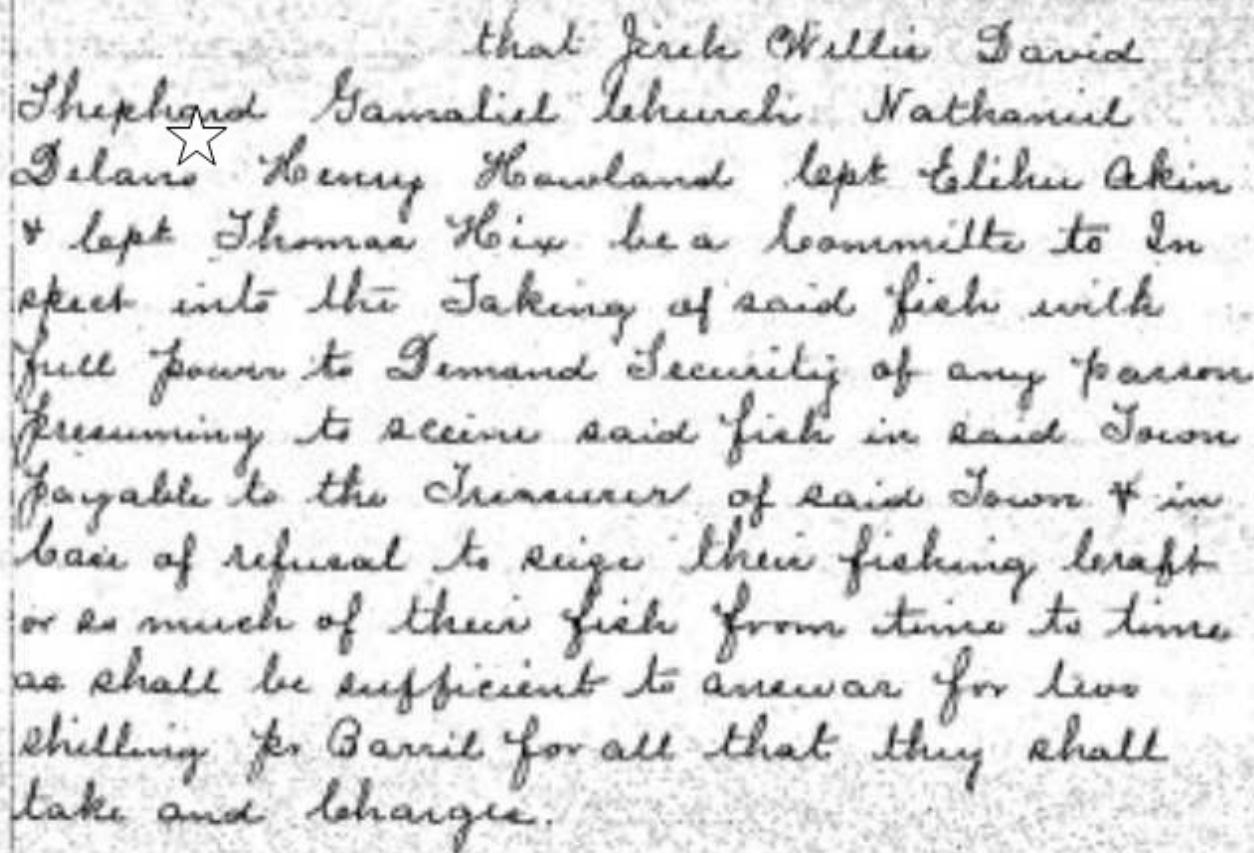 that Jireh Willis David
Shephard Gamaliel Church Nathaniel
Delano Henry Howland Capt Elihu Akin
& Capt Thomas Hix be a Committe to In
spect into the Taking of said fish with
full power to Demand Security of any parson
presuming to sceine said fish in said Town
payable to the Treasurer of said Town & in
Case of refusal to seige their fishing Craft
or so much of their fish from time to time
as shall be sufficient to answar for two
shilling pr Barril for all that they shall
take and Charges.